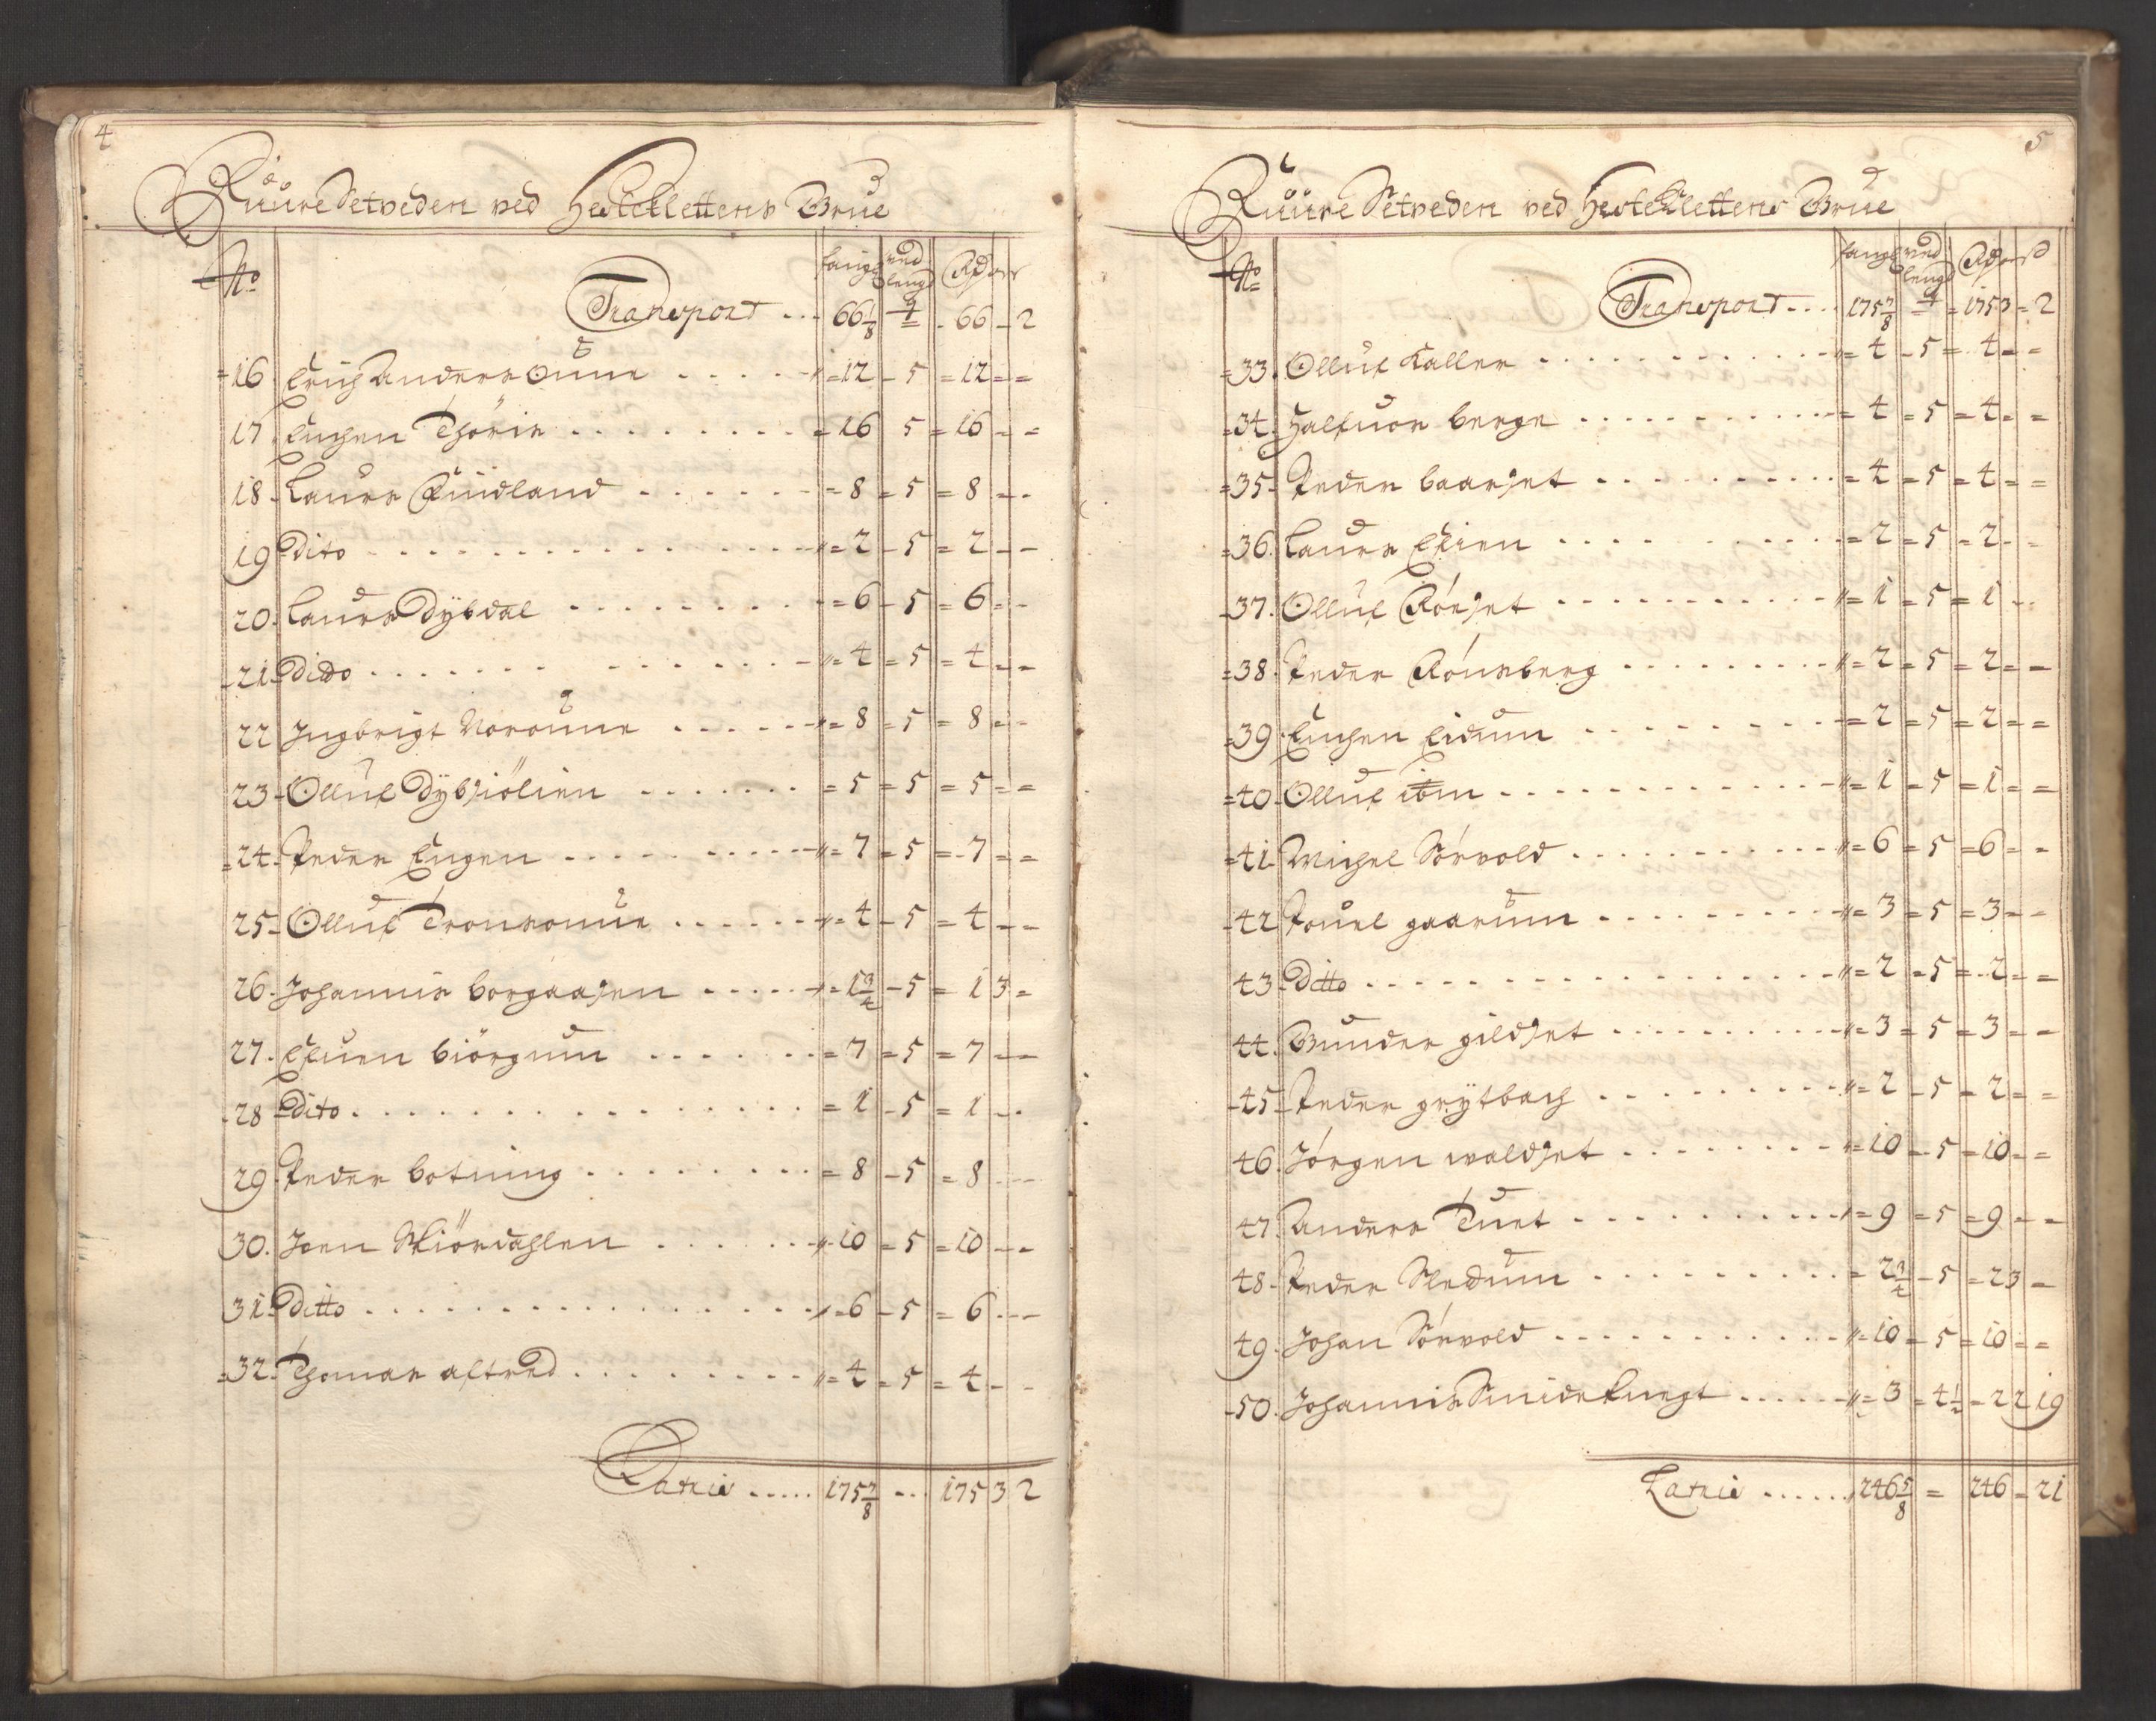 4
Ruure Setveden ved Hesteklettens Brue
No fang ved lengd Rdr ort s
Transport ... 66 1/8 4 = 66 - 2
16 Erich Anders Oune . . . . = 12 - 5 = 12 = =
17 Enchen Thöris . . . . = 16 5 = 16 = =
18. Laurs Ruidland . . . . = 8 = 5 = 8 = -
19 Dito . . . . = 2 - 5 = 2 - -
20. Laurs Dybdal . . . . = 6 - 5 = 6 = -
21. Dito . . . . = 4 = 5 = 4 = -
22 Ingbrigt Noroune . . . . = 8 = 5 = 8 = -
23 - Olluf Dybsiölien . . . . = 5 = 5 = 5 = =
24. Peder Engen . . . . = 7 = 5 = 7 = =
25 - Olluf Tronsoune . . . . = 4 - 5 = 4 = -
26. Johannis borgaasen . . . . = 1 3/4 - 5 = 1 3 =
27. Efuen biörgum . . . . = 7 = 5 = 7 = -
28 Dito . . . . = 1 - 5 = 1 - -
29. Peder botning . . . . = 8 - 5 = 8 - -
30. Joen Skiördahlen . . . . 10 = 5 = 10 - -
31. Ditto . . . . = 6 - 5 = 6 - -
32. Thomas aftred . . . . = 4 = 5 = 4 - -
Latris ..... 175 7/8 ... 175 3 2
5
Ruure Setveden ved Hesteklettens Brue
No fang ved lengd Rdr ort s
Transport .... 175 7/8 4 = 175 3 = 2
33. Olluf Kaller . . . . = 4 - 5 = 4 = =
34. Halfuor berge . . . . = 4 = 5 = 4 = =
35. Peder baarset . . . . = 4 = 5 = 4 = =
36. Laurs Efien . . . . = 2 = 5 = 2 - -
37. Olluf Rönset . . . . = 1 = 5 = 1 - -
38. Peder Rönsberg . . . . = 2 = 5 = 2 = =
39. Enchen Eidum . . . . = 2 = 5 = 2 = =
40. Olluf itm . . . . = 1 = 5 = 1 = =
41. Michel Sörvold . . . . = 6 = 5 = 6 = -
42 Pouel gaarum . . . . = 3 = 5 = 3 = -
43 Ditto . . . . = 2 = 5 = 2 = =
44. Gunder gildset . . . . = 3 = 5 = 3 = =
45 - Peder grÿtbach . . . . = 2 - 5 = 2 = =
46. Jörgen waldset . . . . = 10 = 5 = 10 = =
47. Anders Tuet . . . . = 9 = 5 = 9 = =
48 - Peder Skedum . . . . = 2 3/4 - 5 = 2 3 =
49. Johan Sörvold . . . . = 10 = 5 = 10 = =
50. Johannis Smideknegt . . . . = 3 = 4 1/2 = 2 2 19
Latris ...... 246 5/8 = 246 = 21